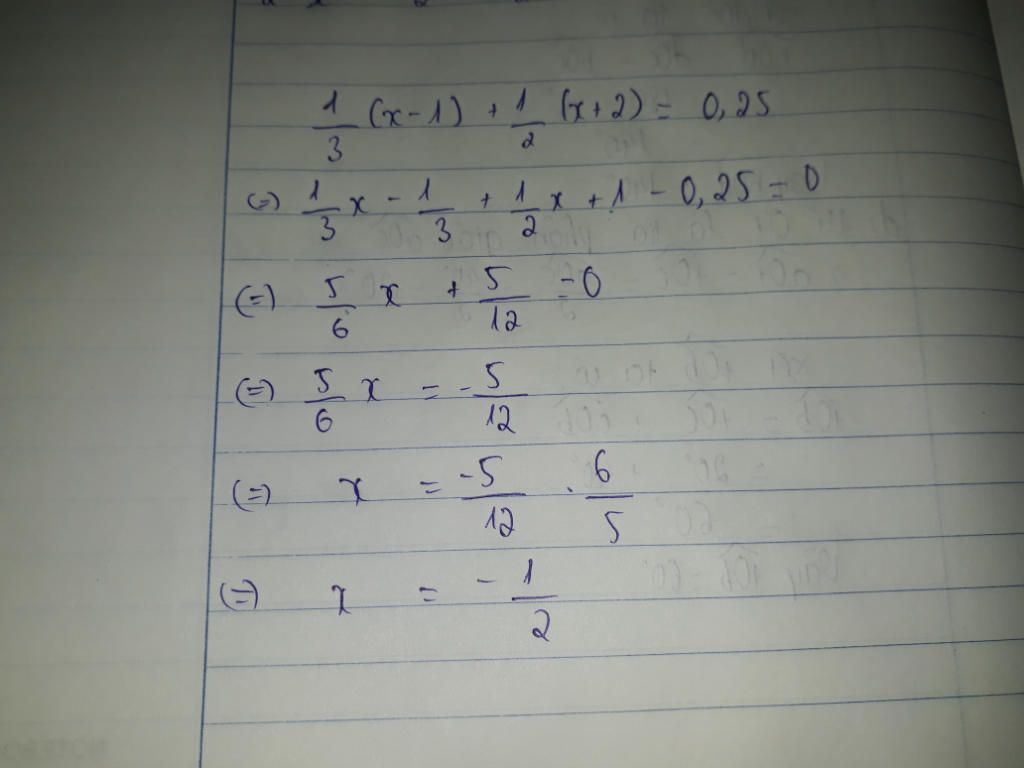 1/3 (x-1) + 1/2 (x+2) = 0,25
(=) 1/3 x - 1/3 + 1/2 x + 1 - 0,25 = 0
(=) 5/6 x + 5/12 = 0
(=) 5/6 x = - 5/12
(=) x = -5/12 . 6/5
(=) x = - 1/2